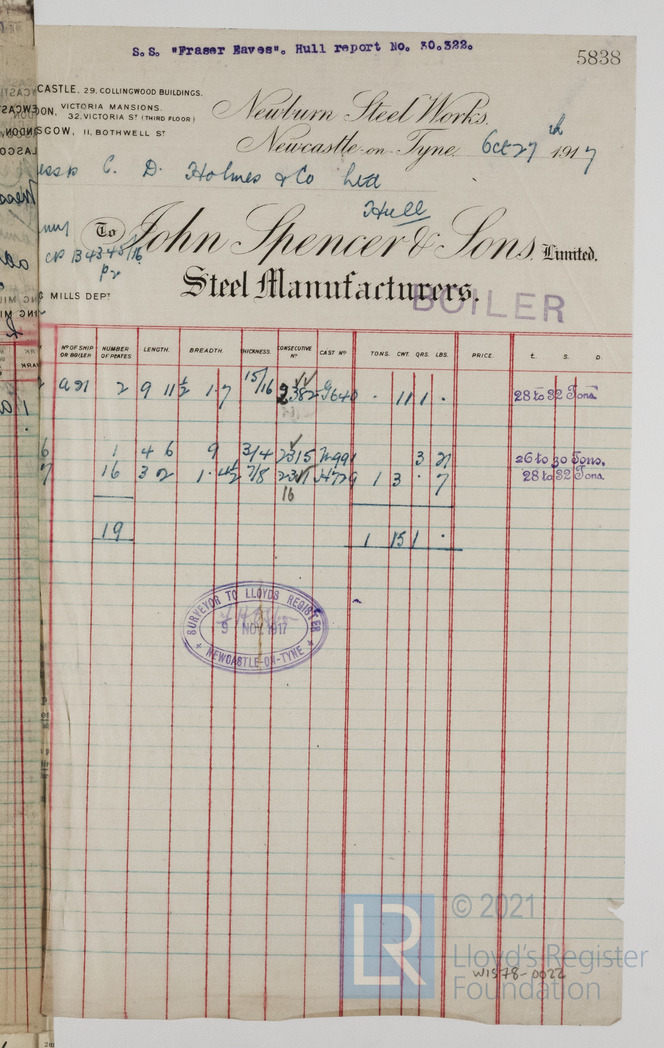 S.S. "Fraser Eaves". Hull report No. 30.322.
5838
CASTLE, 29, COLLINGWOOD BUILDINGS.
DON, VICTORIA MANSIONS.
32, VICTORIA ST (THIRD FLOOR)
SGOW, 11, BOTHWELL ST
Newburn Steel Works.
Newcastle-on-Tyne Oct 27th 1917
C. D. Holmes & Co Ltd
Hull
To John Spencer & Sons, Limited.
MILLS DEPT
Steel Manufacturers.
BOILER
No OF SHIP OR BOILER NUMBER OF PLATES LENGTH. BREADTH. THICKNESS. CONSECUTIVE No CAST No TONS. CWT. QRS. LBS. PRICE. £. S. D.
2 9 11½ 1·7 15/16 2382 · 11 1 · 28 to 32 Tons
6 1 4 6 9 3/4 2315 3 21 26 to 30 Tons.
7 16 3 2 1·4½ 7/8 1 3 · 7 28 to 32 Tons
16
19 1 15 1 ·
SURVEYOR TO LLOYDS REGISTER
9 NOV. 1917
NEWCASTLE-ON-TYNE
© 2021
LR
Lloyd's Register
Foundation
W1578-0022